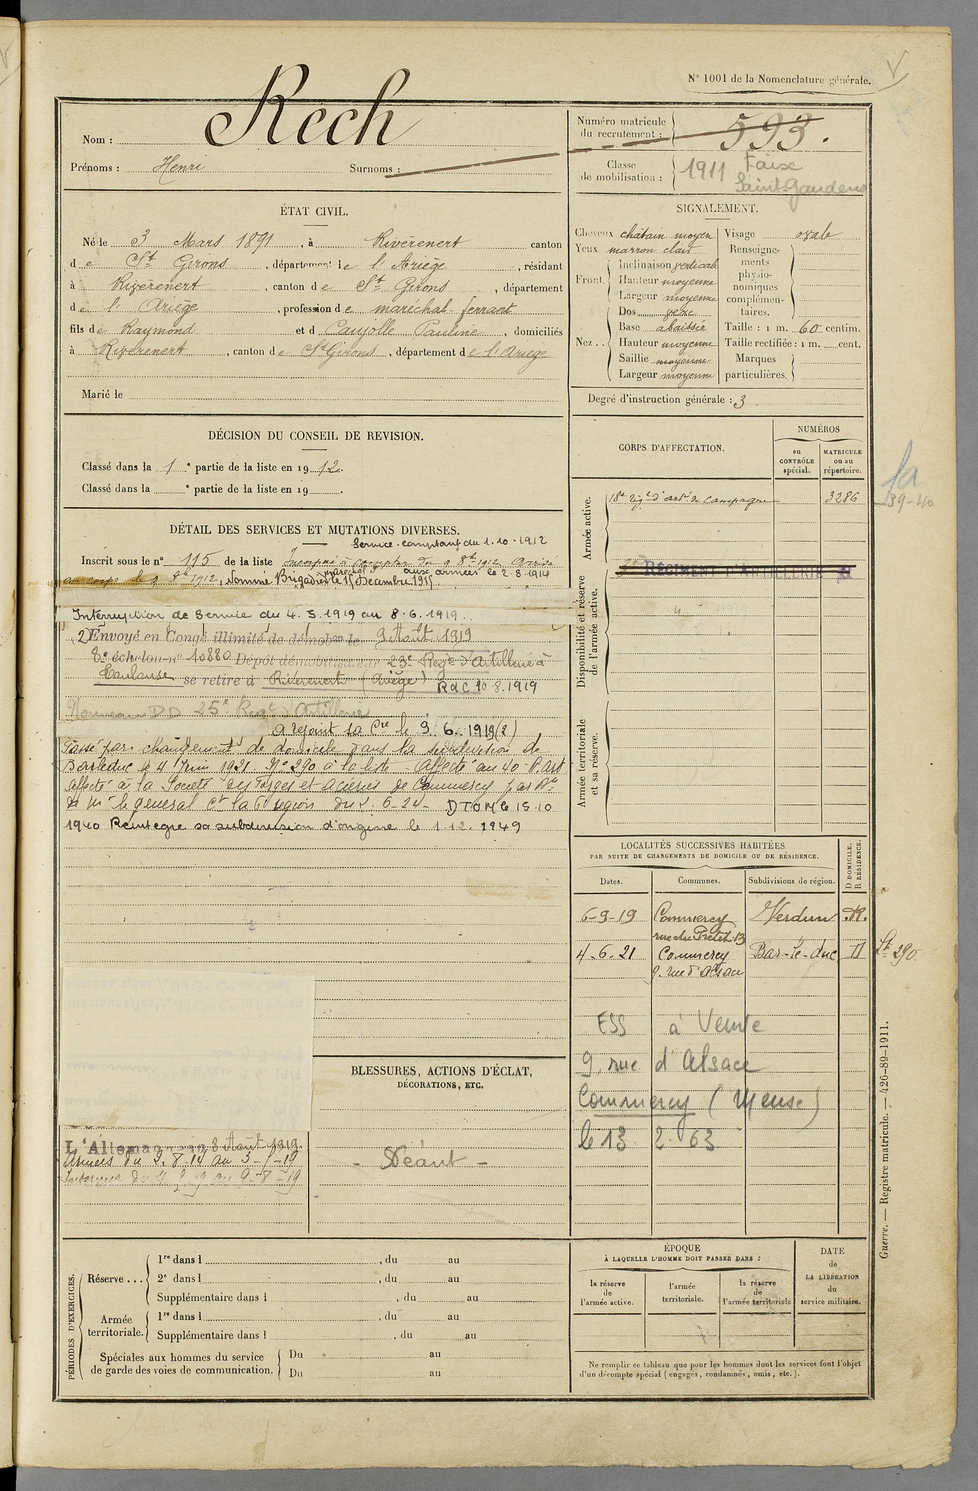 N° 1001 de la Nomenclature générale.
Nom : Rech
Prénoms : Henri Surnoms :
Numéro matricule du recrutement : 593.
Classe de mobilisation : 1911 Foix
Saint-Gaudens
ÉTAT CIVIL.
Né le 3 Mars 1891, à Rivèrenert canton
de St Girons, département de l'Ariège, résidant
à Rivèrenert, canton de St Girons, département
de l'Ariège, profession de maréchal-ferrant
fils de Raymond et d Caujolle Pauline, domiciliés
à Rivèrenert, canton de St Girons, département de l'Ariège
Marié le
SIGNALEMENT.
Cheveux châtain moyen
Yeux marron clair
Front. Inclinaison verticale
Hauteur moyenne
Largeur moyenne
Nez.. Dos
Base abaissée
Hauteur moyenne
Saillie moyenne
Largeur moyenne
Visage ovale
Renseignements physionomiques complémentaires.
Taille : 1 m. 60 centim.
Taille rectifiée : 1 m. cent.
Marques particulières.
Degré d'instruction générale : 3
DÉCISION DU CONSEIL DE REVISION.
Classé dans la 1e partie de la liste en 1912.
Classé dans la e partie de la liste en 19
DÉTAIL DES SERVICES ET MUTATIONS DIVERSES.
Service comptant du 1.10.1912
Inscrit sous le n° 115 de la liste Incorporé à compter du 9 8bre 1912 Arrivé
au corps le 9 8bre 1912, Nommé Brigadier le 15 Décembre 1915
aux armées le 2-8-1914
Interruption de Service du 4.5.1919 au 8.6.1919
(2) Envoyé en Congé illimité de démobon le 9 Août 1919
8e échelon n° 10880 Dépôt démobilisateur 23e Regt d'Artillerie à
Toulouse se retire à Rivèrenert (Ariège) RdC 10.8.1919
Nouveau DD 25e Regt d'Artillerie
A rejoint sa Cie le 9.6.1919 (2)
Passé par changement de domicile dans la subdivision de
Bar le duc le 4 Juin 1921. N° 290 à la liste - Affecté au 40e R. art
affecté à la Société des Forges et aciéries de Commercy par
de Mr le général Ct la 6e région du 2.6.24- DTOMC 15-10
1940 Réintégré sa subdivision d'origine le 1.12.1949
CORPS D'AFFECTATION.
NUMÉROS
au CONTRÔLE spécial.
MATRICULE ou au répertoire.
Armée active.
18e Rgt d'artie de campagne 3286
Disponibilité et réserve de l'armée active.
RÉGIMENT D'ARTILLERIE
Armée territoriale et sa réserve.
39-40
LOCALITÉS SUCCESSIVES HABITÉES
PAR SUITE DE CHANGEMENTS DE DOMICILE OU DE RÉSIDENCE.
Dates. Communes. Subdivisions de région. D DOMICILE. R RÉSIDENCE.
6-9-19 Commercy Verdun R.
4-6-21 Commercy Bar-le-duc D
9. rue d'Alsace
290
ESS à Vente
9, rue d'Alsace
Commercy (Meuse)
le 13 2 63
BLESSURES, ACTIONS D'ÉCLAT,
DÉCORATIONS, ETC.
- Néant -
L'Allemagne 8 Août 1919.
Armées du 2-8-14 au 3-5-19
Intérieur du au 9-8-19
PÉRIODES D'EXERCICES.
Réserve... 1re dans l , du au
2e dans l , du au
Supplémentaire dans l , du au
Armée territoriale. 1re dans l , du au
Supplémentaire dans l , du au
Spéciales aux hommes du service de garde des voies de communication. Du au
Du au
ÉPOQUE
À LAQUELLE L'HOMME DOIT PASSER DANS :
la réserve de l'armée active.
l'armée territoriale.
la réserve de l'armée territoriale
DATE de LA LIBÉRATION du service militaire.
Ne remplir ce tableau que pour les hommes dont les services font l'objet
d'un décompte spécial (engagés, condamnés, omis, etc.).
Guerre. — Registre matricule. — 426-89-1911.